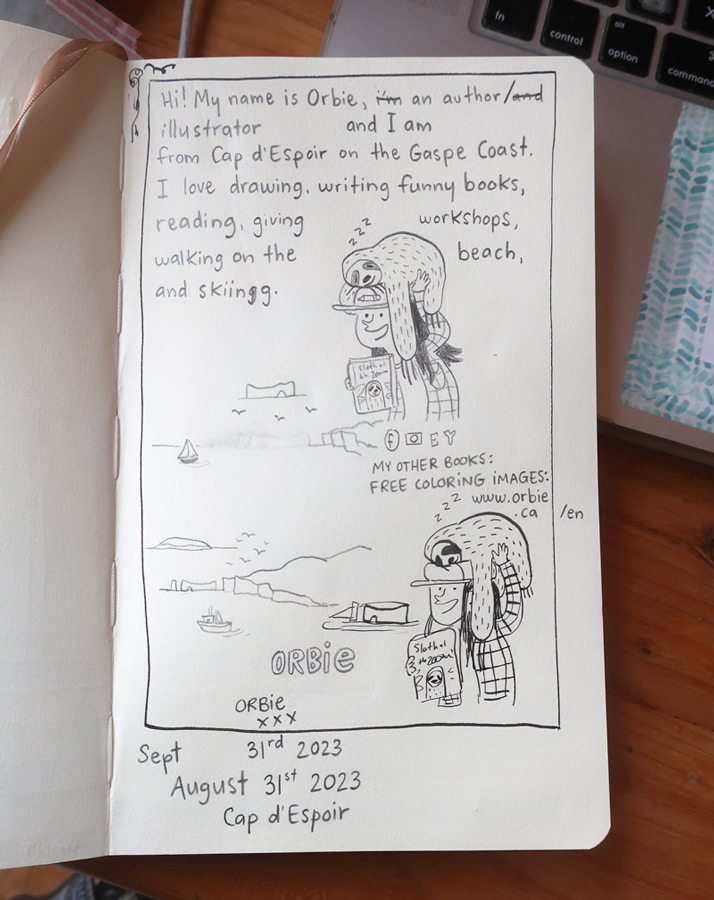 Hi! My name is Orbie, i'm an author/and
illustrator and I am
from Cap d'Espoir on the Gaspe Coast.
I love drawing, writing funny books,
reading, giving workshops,
walking on the beach,
and skiingg.
zzz
Sloth at
the Zoom
f EY
MY OTHER BOOKS:
FREE COLORING IMAGES:
www.orbie
.ca /en
zzz
Sloth at
the Zoom
ORBiE
ORBiE
xxx
Sept 31rd 2023
August 31st 2023
Cap d'Espoir
fn
control
alt
option
⌘
command
X